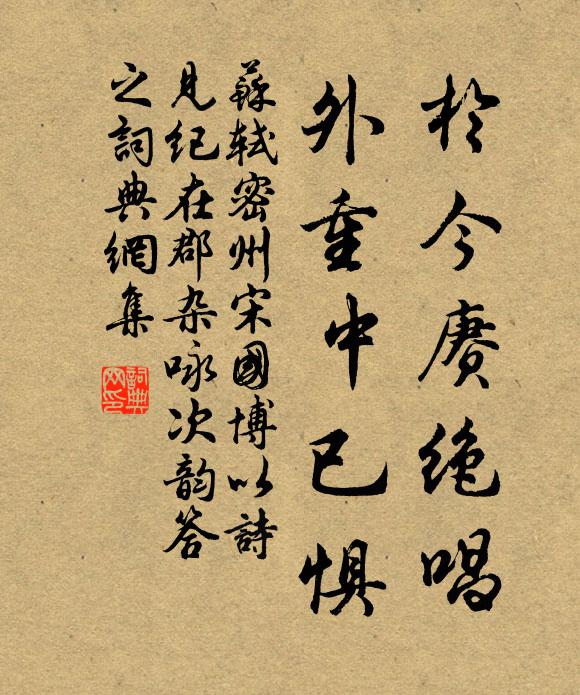 於今賡絶唱
外重中已懼
蘇軾密州宋國博以詩
見紀在郡杂咏次韵答
之詞典網集
詞典
网印